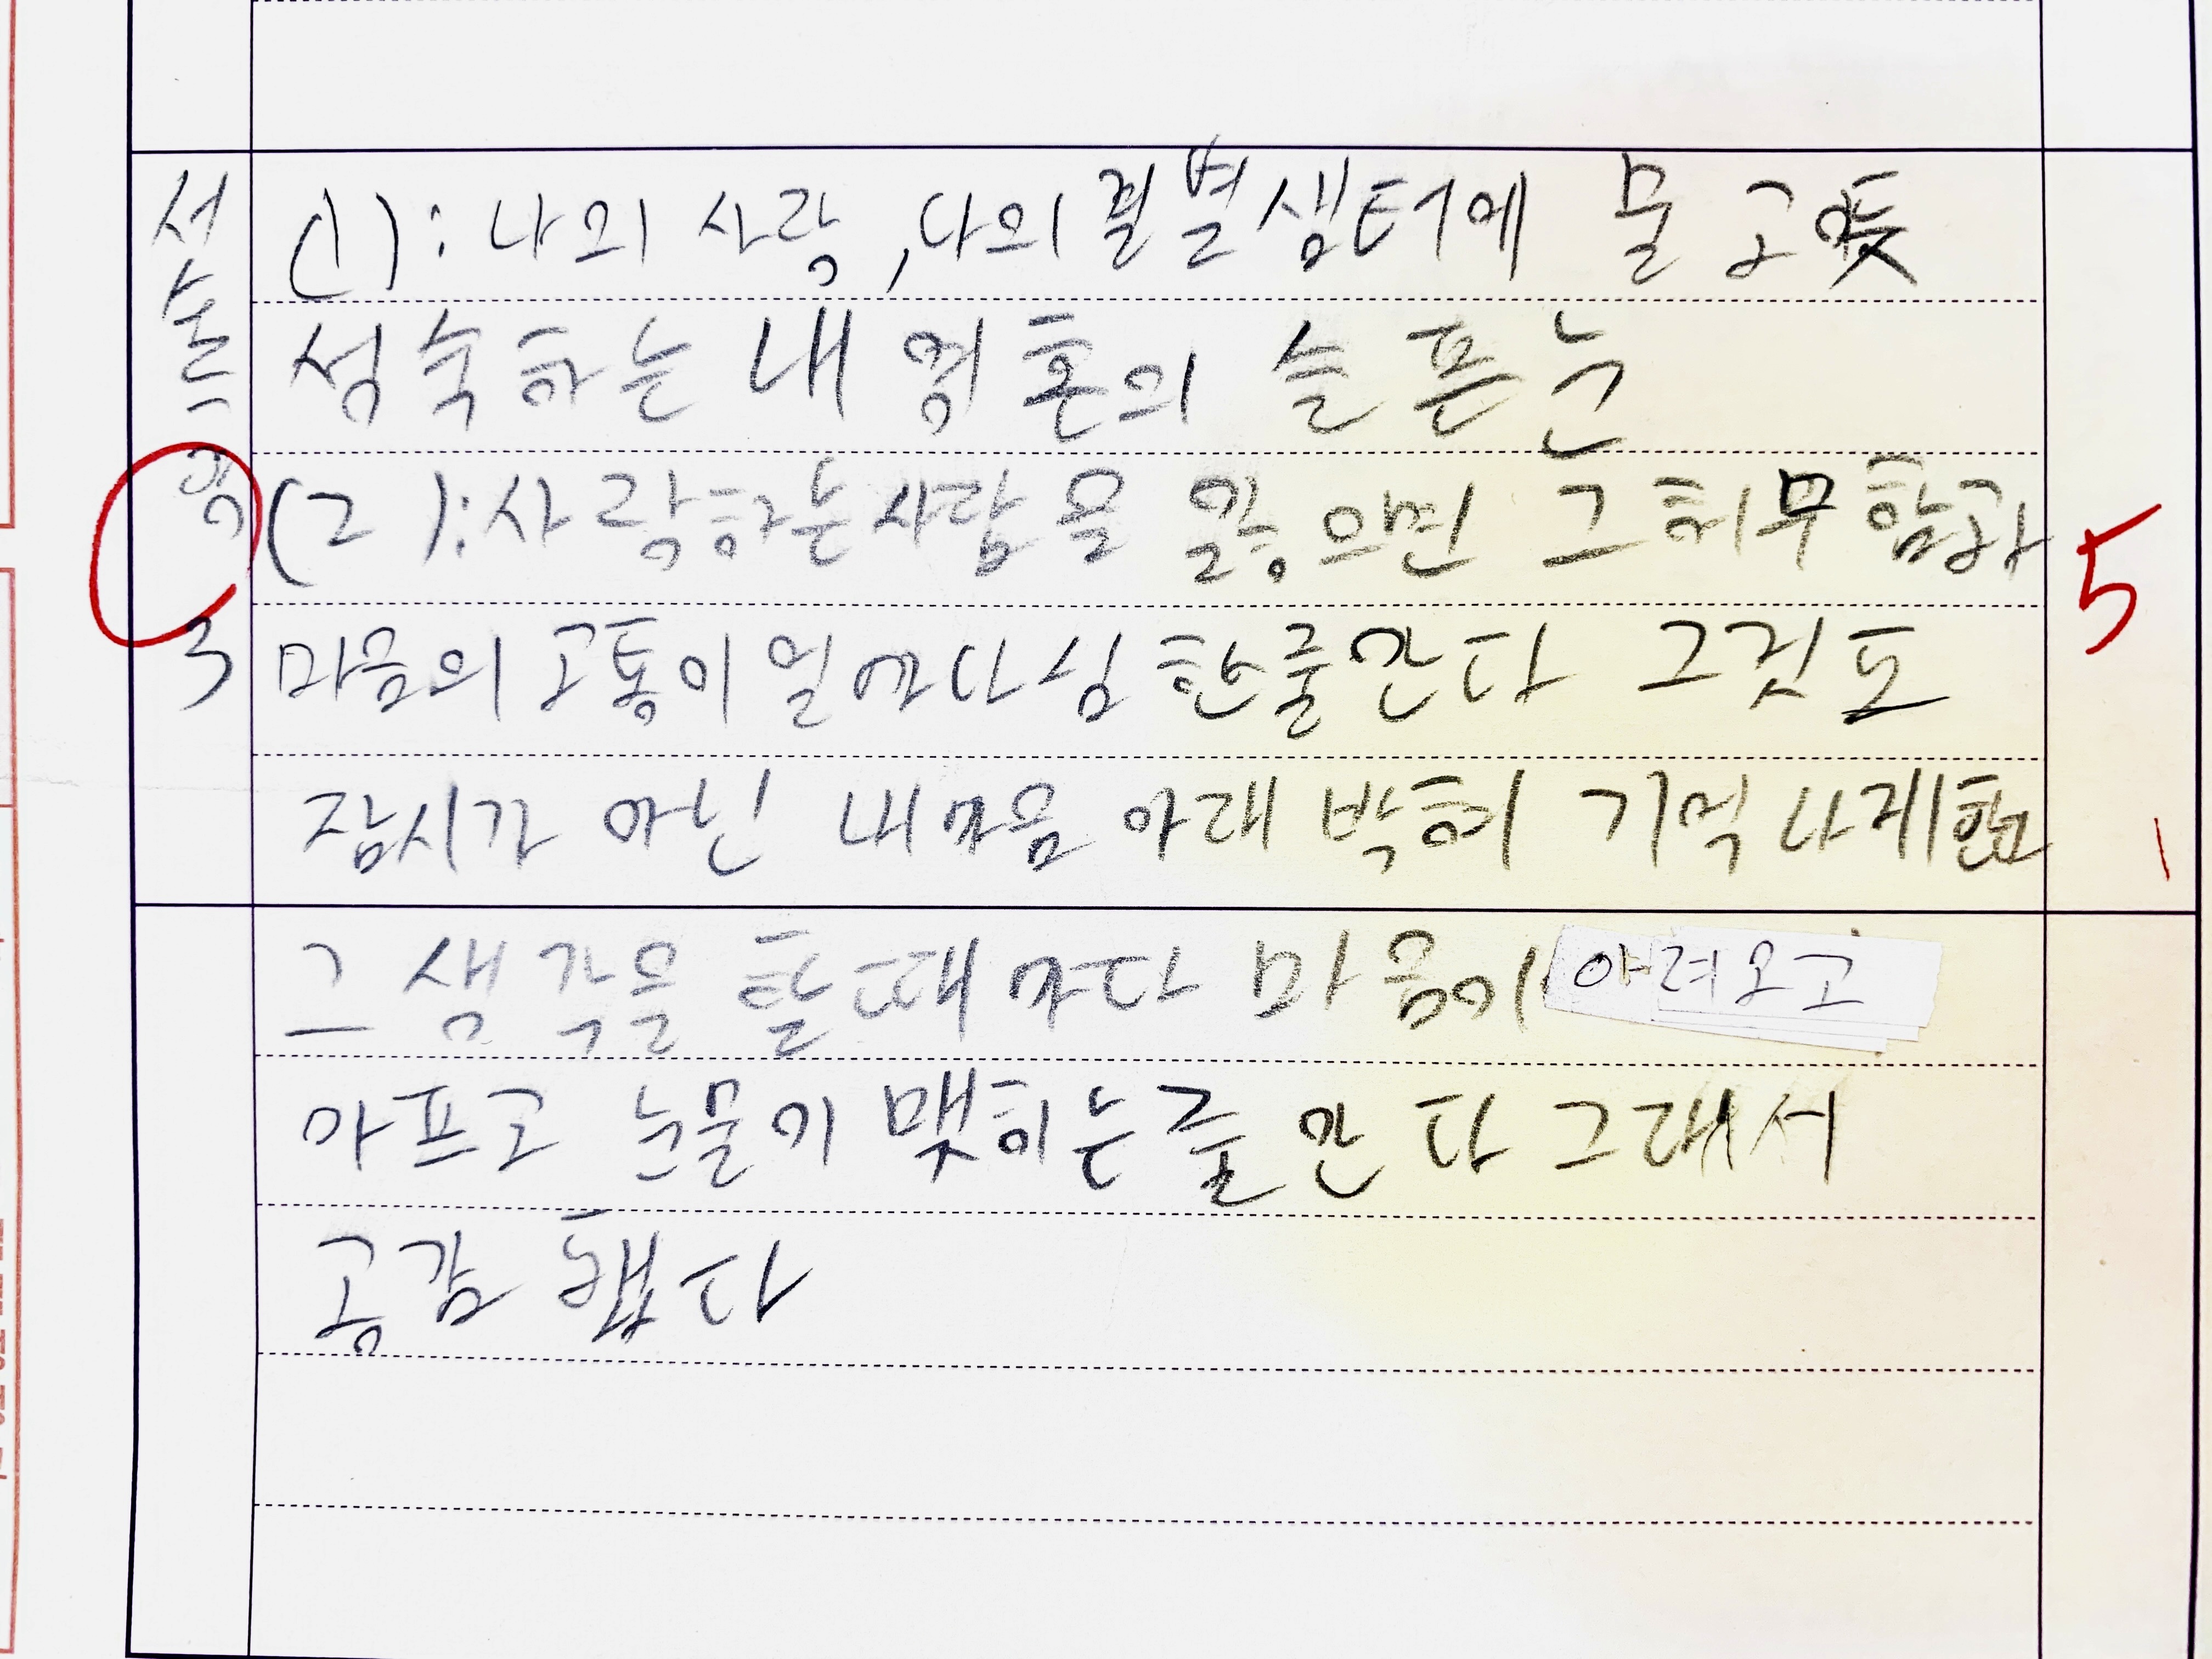 서술형 3
(1): 나의 사랑, 나의 결별 샘터에 물 고이듯
성숙하는 내 영혼의 슬픈눈
(2): 사랑하는사람을 잃으면 그 허무함과
마음의 고통이 얼마나 심한줄안다 그것도
잠시가 아닌 내마음 아래 박혀 기억나게한
5
그 생각을 할때마다 마음이 아려오고
아프고 눈물이 맺히는줄 안다 그래서
공감 했다